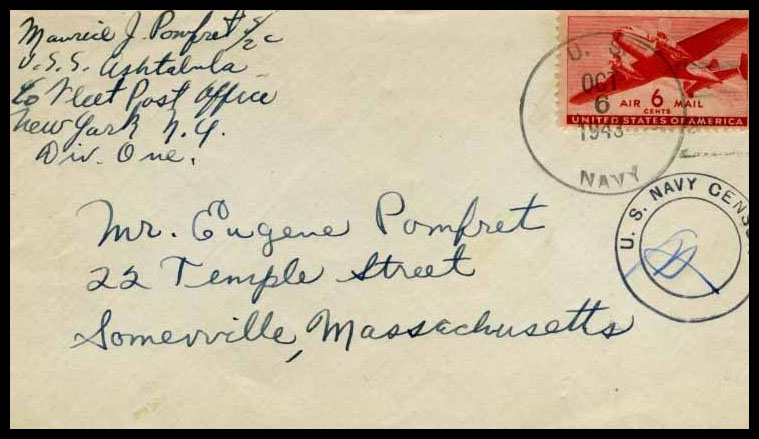 Maurice J. Pomfret S/2c
U.S.S. Ashtabula
c/o Fleet Post Office
New York N.Y.
Div. One.
U. S.
OCT
6
1943
NAVY
AIR 6 MAIL
CENTS
UNITED STATES OF AMERICA
U. S. NAVY CENSO
Mr. Eugene Pomfret
22 Temple Street
Somerville, Massachusetts